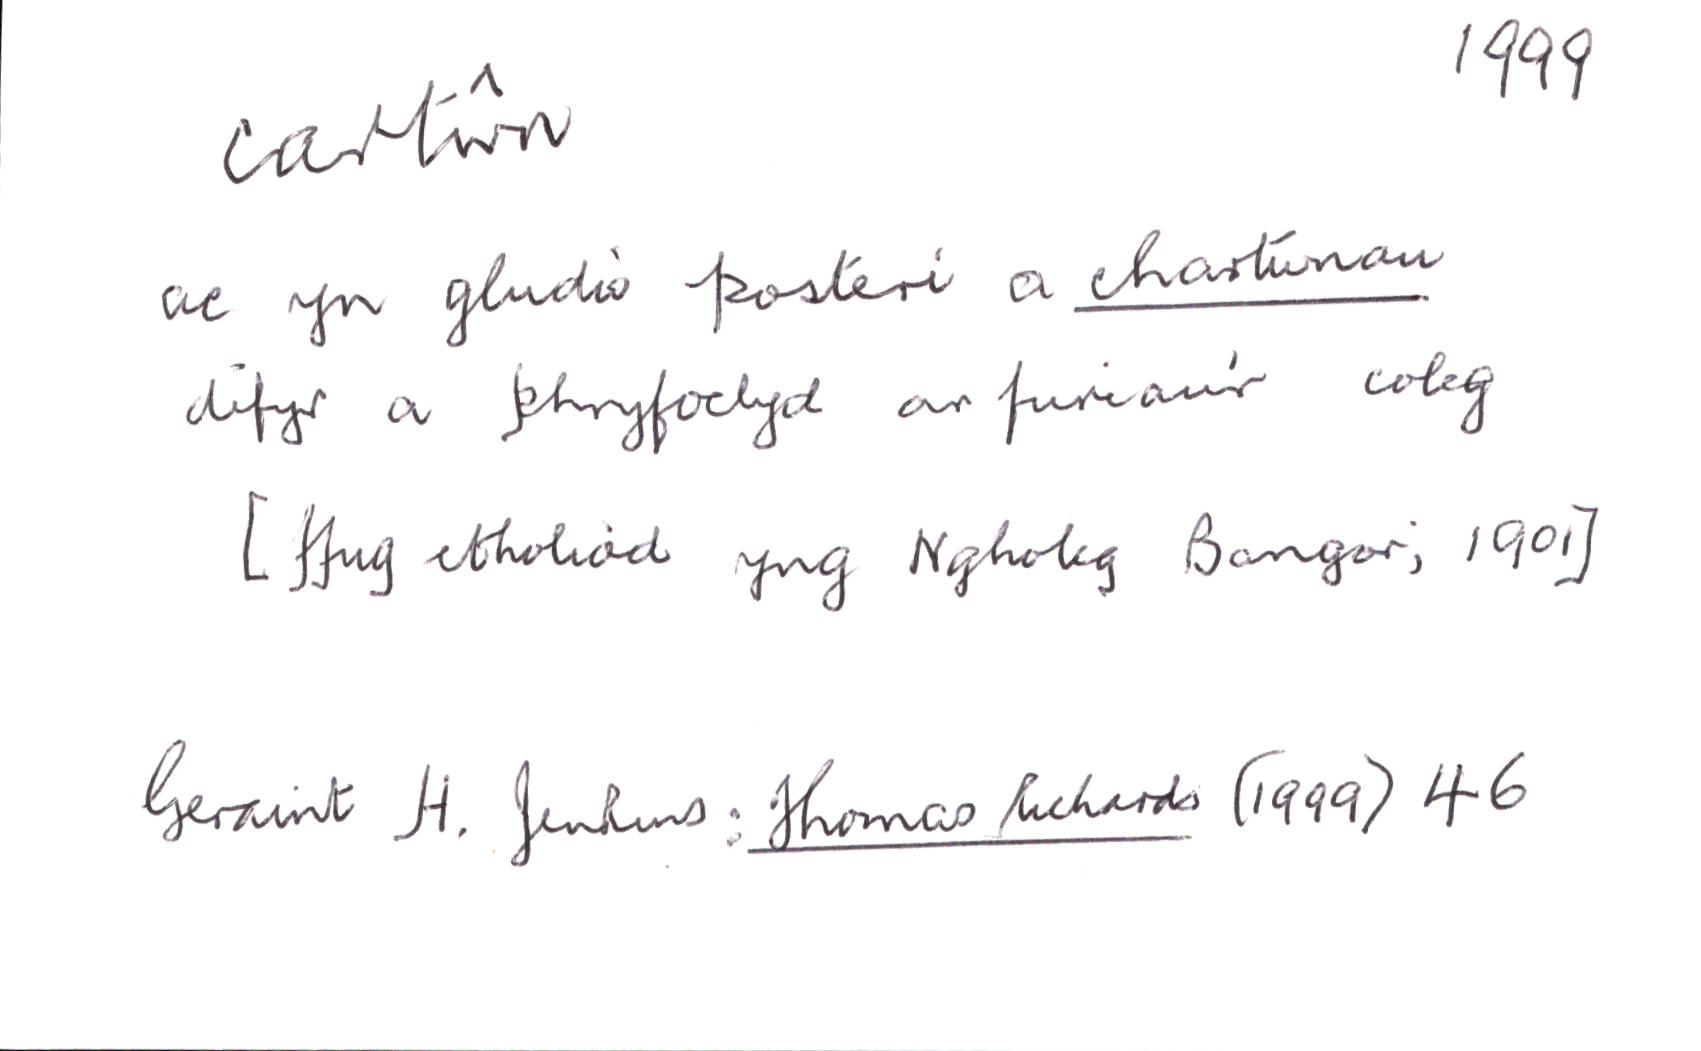 1999
cartŵn
ac yn gludio posteri a chartwnau
difyr a phryfoclyd ar furiau'r coleg
[ffug etholiad yng Ngholeg Bangor, 1901]
Geraint H. Jenkins: Thomas Richards (1999) 46